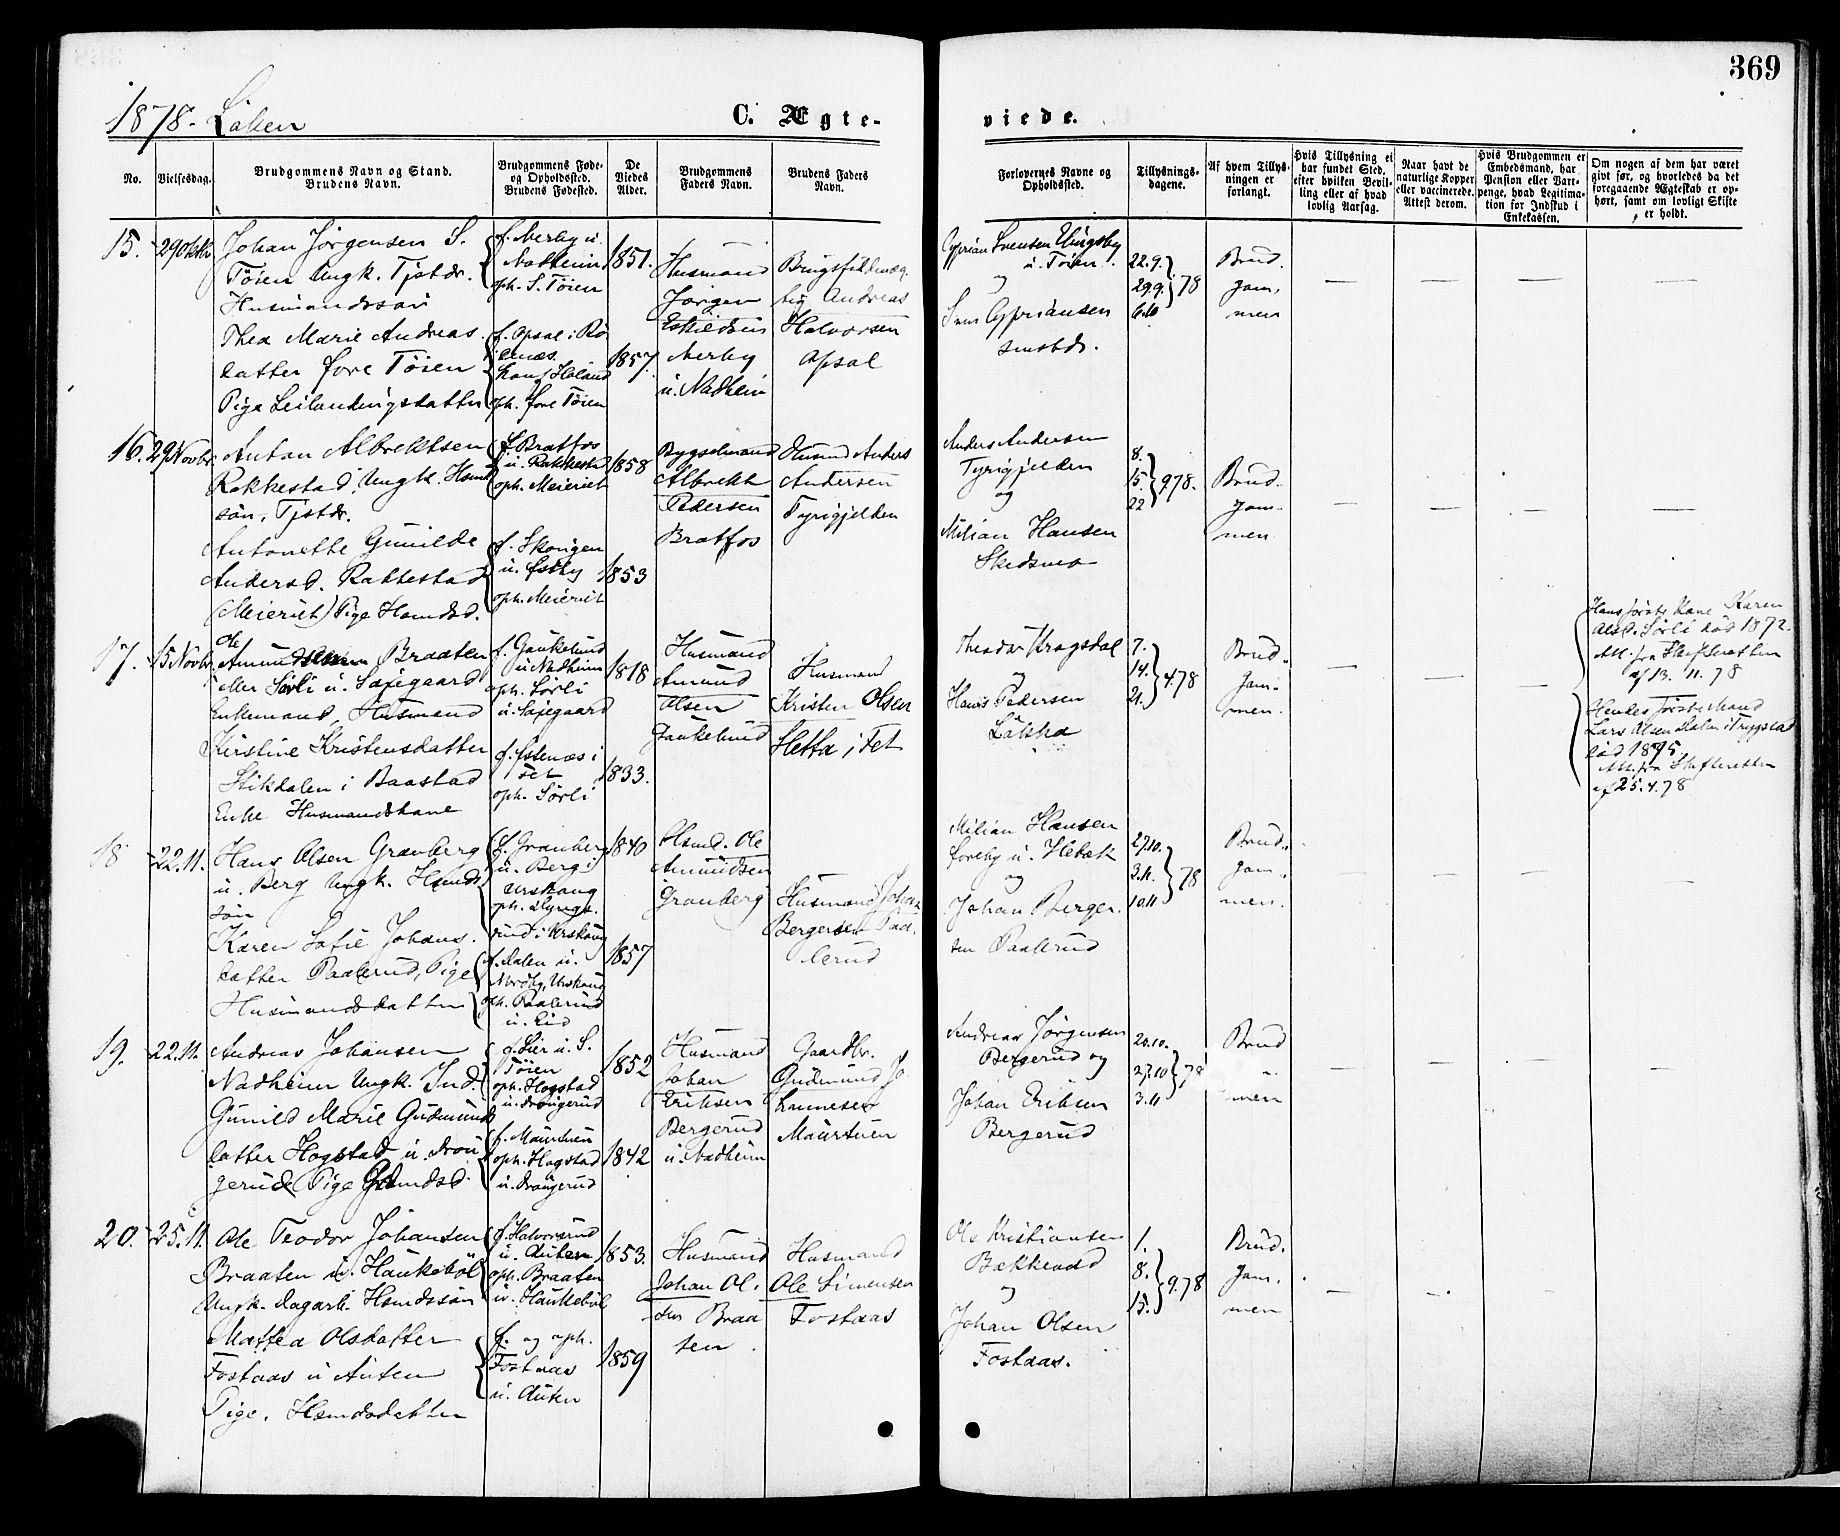 369
1878. Løken
C. Ægte-
viede.
No.
Vielsesdag.
Brudgommens Navn og Stand.
Brudens Navn.
Brudgommens Føde-
og Opholdssted.
Brudens Fødested.
De
Viedes
Alder.
Brudgommens
Faders Navn.
Brudens Faders
Navn.
Forlovernes Navne og
Opholdssted.
Tillysnings-
dagene.
Af hvem Tillys-
ningen er
forlangt.
Hvis Tillysning ei
har fundet Sted,
efter hvilken Bevil-
ling eller af hvad
lovlig Aarsag.
Naar havt de
naturlige Kopper
eller vaccinerede.
Attest derom.
Hvis Brudgommen er
Embedsmand, har
Pension eller Vart-
penge, hvad Legitima-
tion for Indskud i
Enkekassen.
Om nogen af dem har været
givt før, og hvorledes da det
foregaaende Ægteskab er op-
hørt, samt om lovligt Skifte
er holdt.
15.
29 Oktbr.
Johan Jörgensen S.
Töien Ungk. Tjstdr.
Husmandssön
Thea Marie Andreas-
datter fore Töien
Pige Leilendingsdatter
f. Nerby u.
Nadheim
oph. S. Töien
f. Opsal i Rö
denæs
oph. fore Töien
1851.
1857.
Husmand
Jörgen
Eskildsen
Nerby
u. Nadheim
Andreas
Halvorsen
Opsal
Cyprian Svensen Ungsby
u. Töien
og
Sven Cypriansen
22.9.
29.9. } 78
6.10
Brud.
gom.
men
16.
29 Novbr.
Anton Albrektsen
Rakkestad, Ungk. Hsmd
sön, Tjstdr.
Antonette Gunilde
Andersd. Rakkestad
(Meieriet) Pige Hsmdsd.
f. Bratfos
u. Rakkestd
oph. Meieriet
f. Skougen
u. Østby
oph. Meieriet
1858
1853
Bygselmand
Albrekt
Pedersen
Bratfos
Husmd Anders
Andersen
Tyrigjelden
Anders Andersen
Tyrigjelden
og
Milian Hansen
Skedsmo
8.
15. } 9.78.
22
Brud.
gom.
men
17.
15 Novbr.
Ole
Amundsen Braaten
eller Sörli u. Sajegaard
Enkemand, Husmand
Kirstine Kristensdatter
Stikdalen i Baastad
Enke Husmandskone
f. Gaukelund
u. Nadheim
oph. Sörli
u. Sajegaard
f. Østenæs i
Fet
oph. Sörli
1818
1833.
Husmand
Amund
Olsen
Gaukelund
Husmand
Kristen Olsen
Sletta i Fet
Theodor Krogsdal
og
Hans Pedersen
Løkka
7.
14. } 4.78
21.
Brud.
gom.
men.
Hans förste Kone Karen
Olsd. Sörli död 1872.
Att. fra Skifteretten
af 13. 11. 78
Hendes förste Mand
Lars Olsen Dalen i Trygstad
död 1875
Att. fra Skifteretten
af 25.4.78
18
22.11.
Hans Olsen Granberg
u. Berg Ungk. Hsmds
sön
Karen Sofie Johans.
datter Paalerud, Pige
Husmandsdatter
f. Granberg
u. Berg i
Urskoug
rud i Urskoug
f. Dalen u.
Nordby, Urskoug
oph. Paalerud
u. Eid
1840
1857
Hsmd. Ole
Amundsen
Granberg
Husmand Johan
Bergersen Paa
lerud
Milian Hansen
foreby u. Hebæk
og
Johan Berger.
sen Paalerud
27.10.
3.11. } 78
10.11
Brud.
gom.
men.
19.
22.11.
Andreas Johansen
Nadheim Ungk. Ind.
Gunild Marie Gudmunds
datter Hogstad u. Drou
gerud Pige Gdmdsd.
f. Lier u. S.
Töien
oph. Hogstad
u. Drougerud
oph. Hogstad
u. Drougerud
1852
1842
Husmand
Johan
Eriksen
Bergerud
u. Nadheim
Gaardbr.
Gudmund Jo
hannesen
Maurtuen
Andreas Jörgensen
Bergerud og
Johan Eriksen
Bergerud
20.10.
27.10 } 78
3.11
Brud
men
20.
25.11.
Ole Teodor Johansen
Braaten u. Haukeböl
Ungk. Dagarb. Hsmdssön
Mattea Olsdatter
Fostaas u Auten
Pige. Hsmdsdatter
f. Halvorsrud
u. Auten
oph. Braaten
u. Haukeböl
f. og oph.
Fostaas
u. Auten
1853.
1859
Husmand
Johan Ol.
sen Braa
ten
Husmand
Ole Simensen
Fostaas
Ole Kristiansen
Bækkevold
og
Johan Olsen
Fostaas.
1.
8. } 9.78
15.
Brud.
gom.
men